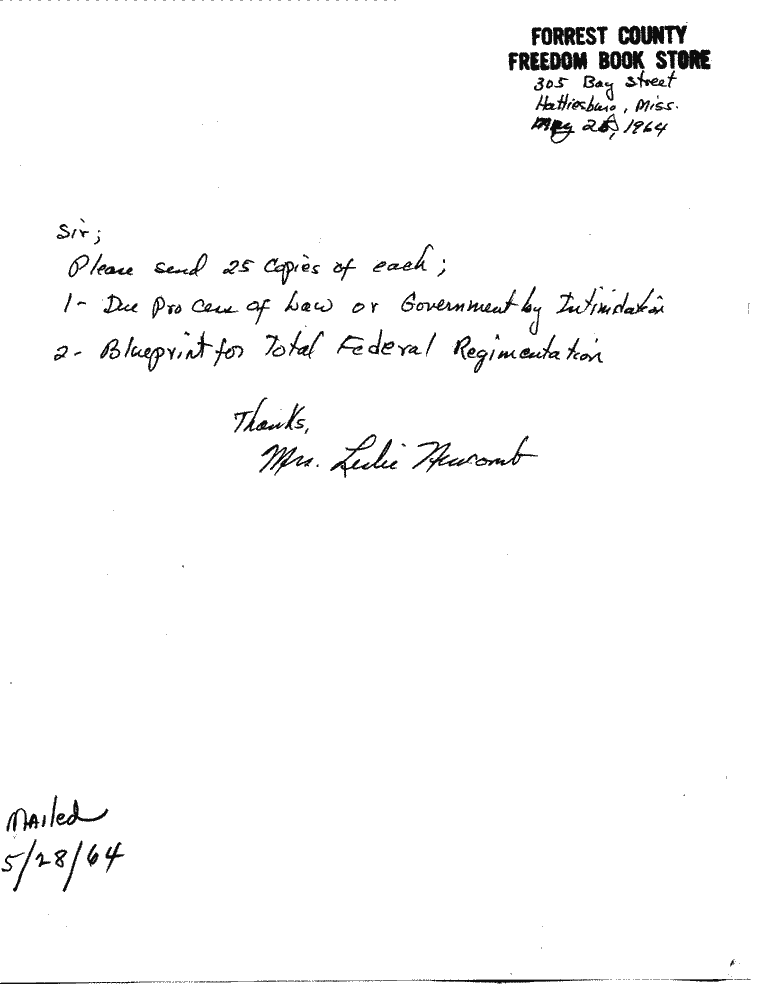 FORREST COUNTY
FREEDOM BOOK STORE
305 Bay Street
Hattiesburg, Miss.
May 25, 1964
Sir;
Please send 25 Copies of each;
1- Due Process of Law or Government by Intimidation
2- Blueprint for Total Federal Regimentation
Thanks,
Mrs. Leslie Newcomb
Mailed
5/28/64